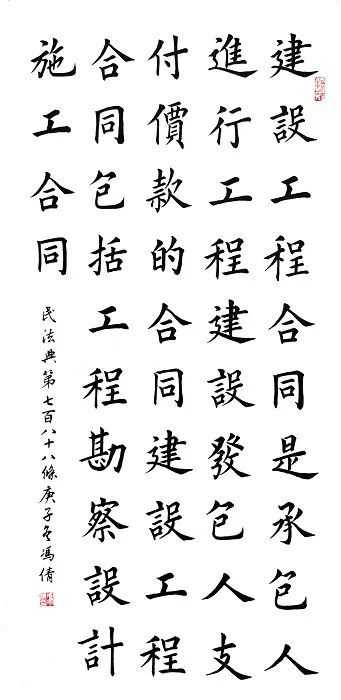 建設工程合同是承包人
進行工程建設發包人支
付價款的合同建設工程
合同包括工程勘察設計
施工合同
民法典第七百八十八條庚子冬馮倩